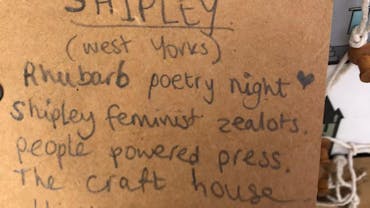 SHIPLEY
(west Yorks)
Rhubarb poetry night ♥
Shipley feminist zealots.
people powered press.
The craft house